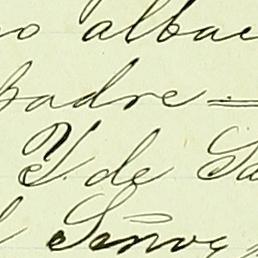 albac
padre =
Y. de Sa
Señor